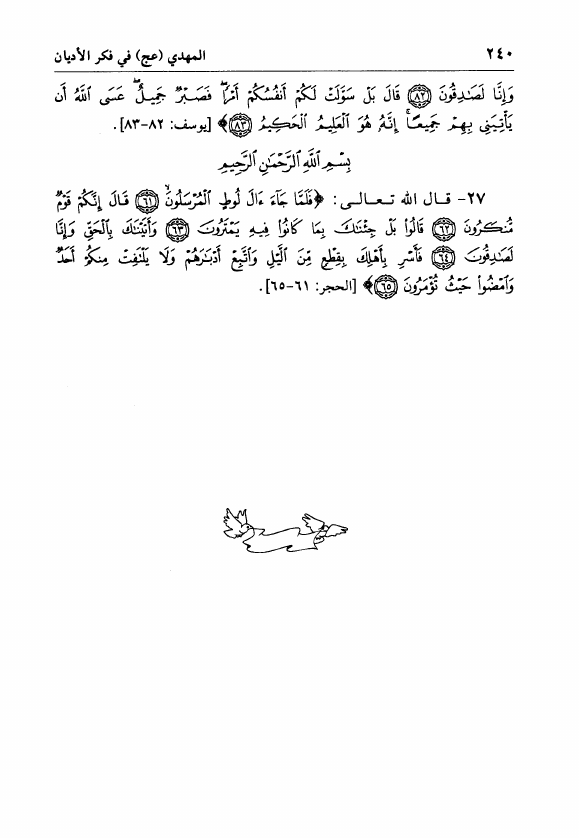 ٢٤٠ المهدي (عج) في فكر الأديان
وَإِنَّا لَصَٰدِقُونَ ﴿٨٢﴾ قَالَ بَلْ سَوَّلَتْ لَكُمْ أَنفُسُكُمْ أَمْرًا ۖ فَصَبْرٌ جَمِيلٌ ۖ عَسَى ٱللَّهُ أَن
يَأْتِيَنِى بِهِمْ جَمِيعًا ۚ إِنَّهُۥ هُوَ ٱلْعَلِيمُ ٱلْحَكِيمُ ﴿٨٣﴾﴾ [يوسف: ٨٢-٨٣].
بِسْمِ ٱللَّهِ ٱلرَّحْمَٰنِ ٱلرَّحِيمِ
٢٧- قال الله تعالى: ﴿فَلَمَّا جَآءَ ءَالَ لُوطٍ ٱلْمُرْسَلُونَ ﴿٦١﴾ قَالَ إِنَّكُمْ قَوْمٌ
مُّنكَرُونَ ﴿٦٢﴾ قَالُوا۟ بَلْ جِئْنَٰكَ بِمَا كَانُوا۟ فِيهِ يَمْتَرُونَ ﴿٦٣﴾ وَأَتَيْنَٰكَ بِٱلْحَقِّ وَإِنَّا
لَصَٰدِقُونَ ﴿٦٤﴾ فَأَسْرِ بِأَهْلِكَ بِقِطْعٍ مِّنَ ٱلَّيْلِ وَٱتَّبِعْ أَدْبَٰرَهُمْ وَلَا يَلْتَفِتْ مِنكُمْ أَحَدٌ
وَٱمْضُوا۟ حَيْثُ تُؤْمَرُونَ ﴿٦٥﴾﴾ [الحجر: ٦١-٦٥].